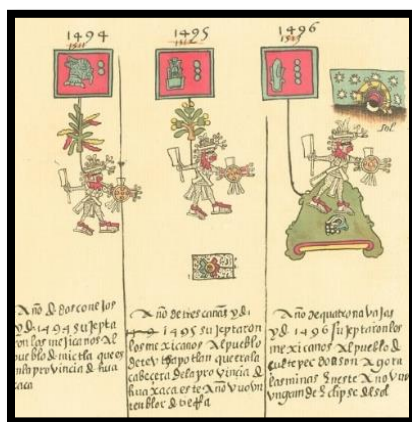 1494
1495
1496
sol
Año de dos conejos
y de 1494 sujeta
ron los mejicanos Al
pueblo de mictla que es
en la provincia de hua
xaca
Año de tres cañas y de
1495 sujetaron
los mexicanos Al pueblo
de teutzapotlan que era la
cabecera de la provincia de
huaxaca este Año vuo vn
tenblor de
Año de quatro navajas
y de 1496 sujetaron los
mexicanos Al pueblo de
donson Agora
las minas en este Año vuo
vn gran de eclipse del sol